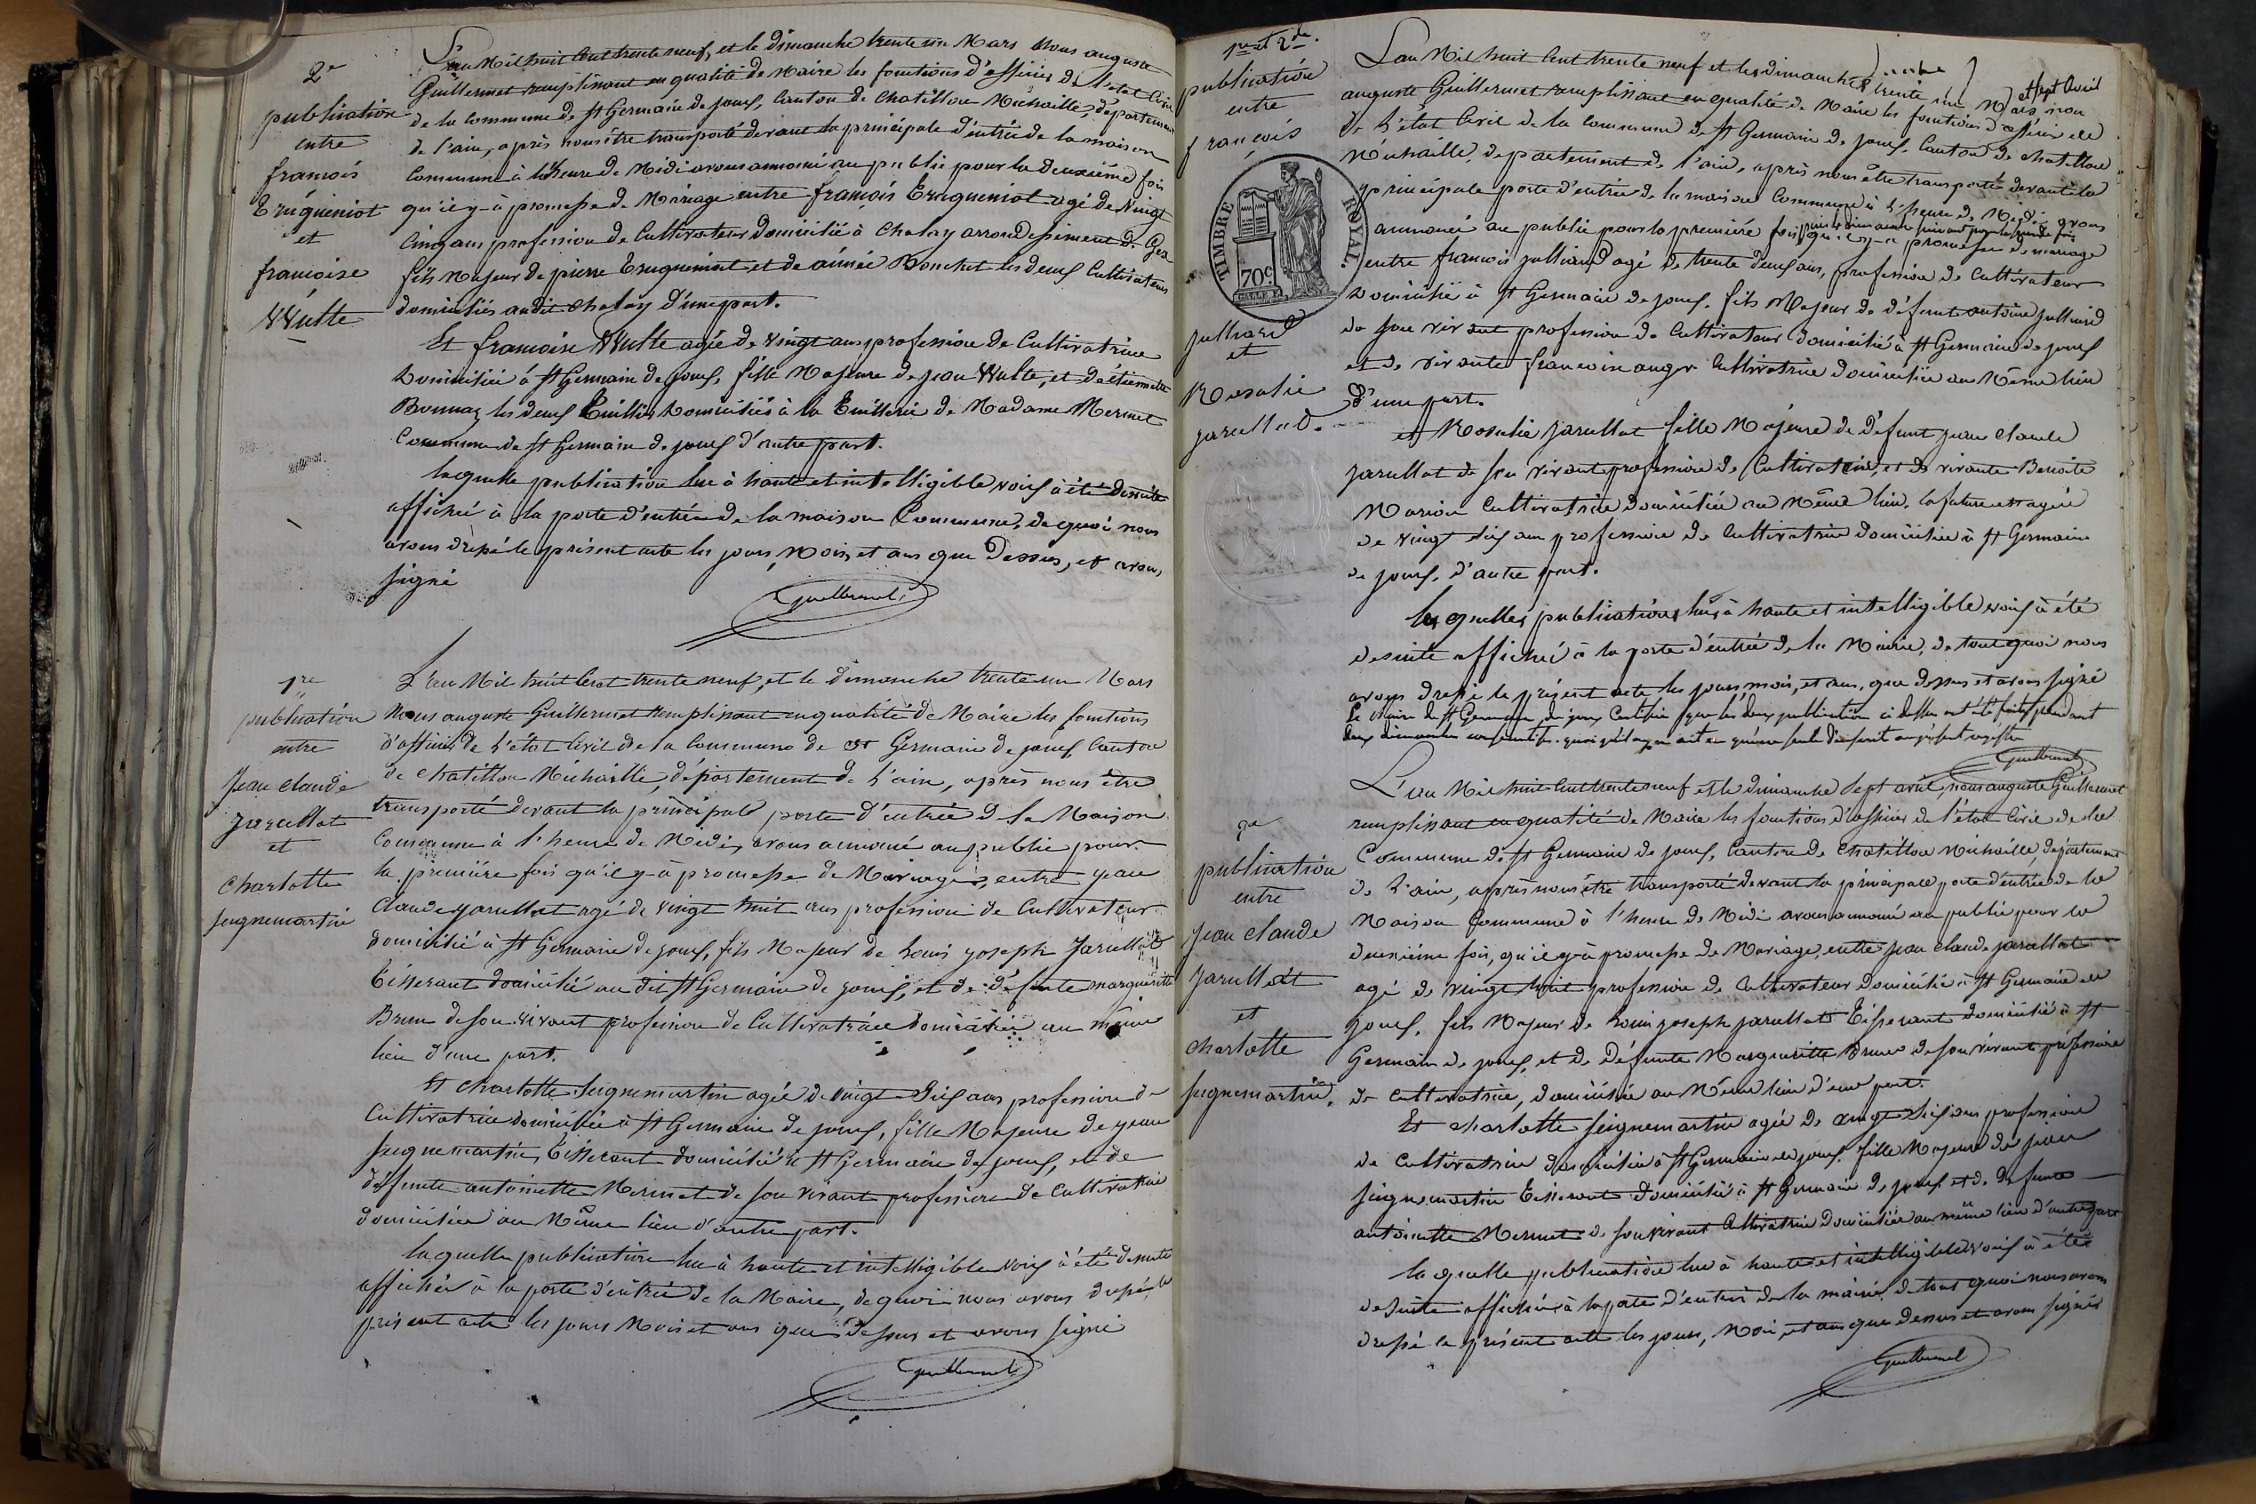 2e
publication
entre
françois
Eruqueniot
et
françoise
VVulte
L'an Mil huit Cent trente neuf, et le dimanche trente un Mars Nous auguste
Guillermet remplissant en qualité de Maire les fonctions d'officier de l'état Civil
de la Commune de St Germain de joux, Canton de Chatillon Michaille, département
de l'ain, après nous être transporté devant la principale d'entrée de la maison
Commune à l'Heure de Midi avons annoncé au public pour la deuxième fois
qu'il y-à promesse de Mariage entre françois Eruqueniot agé de vingt
Cinq ans profession de Cultivateur domicilié à Chalay arrondissement de Gex
fils Majeur de pierre Eruqueniot et de aimée Bonchet les deux Cultivateurs
domiciliés audit Chalay d'une part.
Et françoise VVulte agée de vingt ans profession de Cultivatrice
Domiciliée à St Germain de joux, fille Majeure de jean VVulte, et d'étiennette
Bonnaz les deux Domiciliés à la de Madame Mermet
Commune de St Germain de joux d'autre part.
laquelle publication lue à haute et intelligible voix à été de suite
affichée à la porte d'entrée de la maison Commune, de quoi nous
avons dressé le présent acte les jours, Mois, et ans que Dessus, et avons
signé
Guillermet
1re
publication
entre
Jean claude
jarullat
et
Charlotte
Seignemartin
L'an Mil huit Cent trente neuf, et le dimanche trente un Mars
Nous auguste Guillermet remplissant en qualité de Maire les fonctions
d'officier de l'état Civil de la Commune de St Germain de joux Canton
de Chatillon Michaille, département de l'ain, après nous être
transporté devant la principale porte d'entrée de la Maison
Commune à l'heure de Midi, avons annoncé au public pour
la première fois qu'il y-à promesse de Mariage, entre jean
Claude jarullat agé de vingt huit ans profession de Cultivateur
domicilié à St Germain de joux, fils Majeur de Louis joseph Jarullat
Tisserant domicilié au dit St Germain de joux, et de défunte marguerite
Brun de son vivant profession de Cultivatrice domiciliée au même
lieu d'une part.
Et Charlotte Seignemartin agée de vingt six ans profession de
Cultivatrice domiciliée à St Germain de joux, fille Majeure de jean
Seignemartin, Tisserant domicilié à St Germain de joux, et de
défunte antoinette Mermet de son vivant profession de Cultivatrice
domiciliée au Même lieu d'autre part.
laquelle publication lue à haute et intelligible voix à été de suite
affichée à la porte d'entrée de la Mairie, de quoi nous avons dressé le
présent acte les jours Mois et ans que dessus et avons signé
Guillermet
1re et 2de.
publication
entre
françois
TIMBRE ROYAL.
70c
julliard
et
Rosalie
jarullat.
L'an Mil huit Cent trente neuf et les dimanches trente un Mars et sept avril nous
auguste Guillermet remplissant en qualité de Maire les fonctions d'officier de
l'état Civil de la Commune de St Germain de joux, Canton de Chatillon
Michaille, département de l'ain, après nous être transporté devant la
principale porte d'entrée de la maison Commune à l'heure de Midi avons
annoncé au public pour la première fois puis le dimanche suivant pour la seconde fois qu'il y-a promesse de mariage
entre françois julliard agé de trente deux ans, profession de Cultivateur
Domicilié à St Germain de joux, fils Majeur de défunt antoine julliard
de son vivant profession de Cultivateur domicilié à St Germain de joux
et de vivante françoise auger Cultivatrice domiciliée au Même lieu
D'une part.
et Rosalie jarullat fille Majeure de défunt jean claude
jarullat de son vivant profession de Cultivateur, et de vivante Benoite
Marion Cultivatrice domiciliée au Même lieu, la future est agée
de vingt six ans profession de Cultivatrice domiciliée à St Germain
de joux, d'autre part.
lesquelles publications lues à haute et intelligible voix à été
de suite affiché à la porte d'entrée de la Mairie, de tout quoi nous
avons dressé le présent acte les jours, mois, et ans, que dessus et avons signé
Le Maire de St Germain de joux Certifie que les deux publications ci dessus ont été faites pendant
deux dimanches consécutifs quoiqu'il n'y en ait qu'une seule d'inscrite au présent registre
Guillermet
2e
publication
entre
jean claude
jarullat
et
Charlotte
Seignemartin.
L'an Mil huit Cent trente neuf et le dimanche sept avril, nous auguste Guillermet
remplissant en qualité de Maire les fonctions d'officier de l'état Civil de la
Commune de St Germain de joux, Canton de Chatillon Michaille, département
de l'ain, après nous être transporté devant la principale porte d'entrée de la
Maison Commune à l'heure de Midi avons annoncé au public pour la
deuxième fois, qu'il y-à promesse de Mariage, entre jean claude jarullat
agé de vingt huit profession de Cultivateur domicilié à St Germain de
joux, fils Majeur de Louis joseph jarullat Tisserant domicilié à St
Germain de joux, et de Défunte Marguerite Brun de son vivant profession
de cultivatrice, domiciliée au Même lieu d'une part.
Et Charlotte Seignemartin agée de vingt six ans profession
de cultivatrice domiciliée à St Germain de joux, fille Majeure de jean
Seignemartin Tisserant domicilié à St Germain de joux et de défunte
antoinette Mermet de son vivant Cultivatrice Domiciliée au même lieu d'autre part
laquelle publication lue à haute et intelligible voix à été
de suite affichée à la porte d'entrée de la mairie de tout quoi nous avons
dressé le présent acte les jours, Mois, et ans que dessus et avons signés
Guillermet